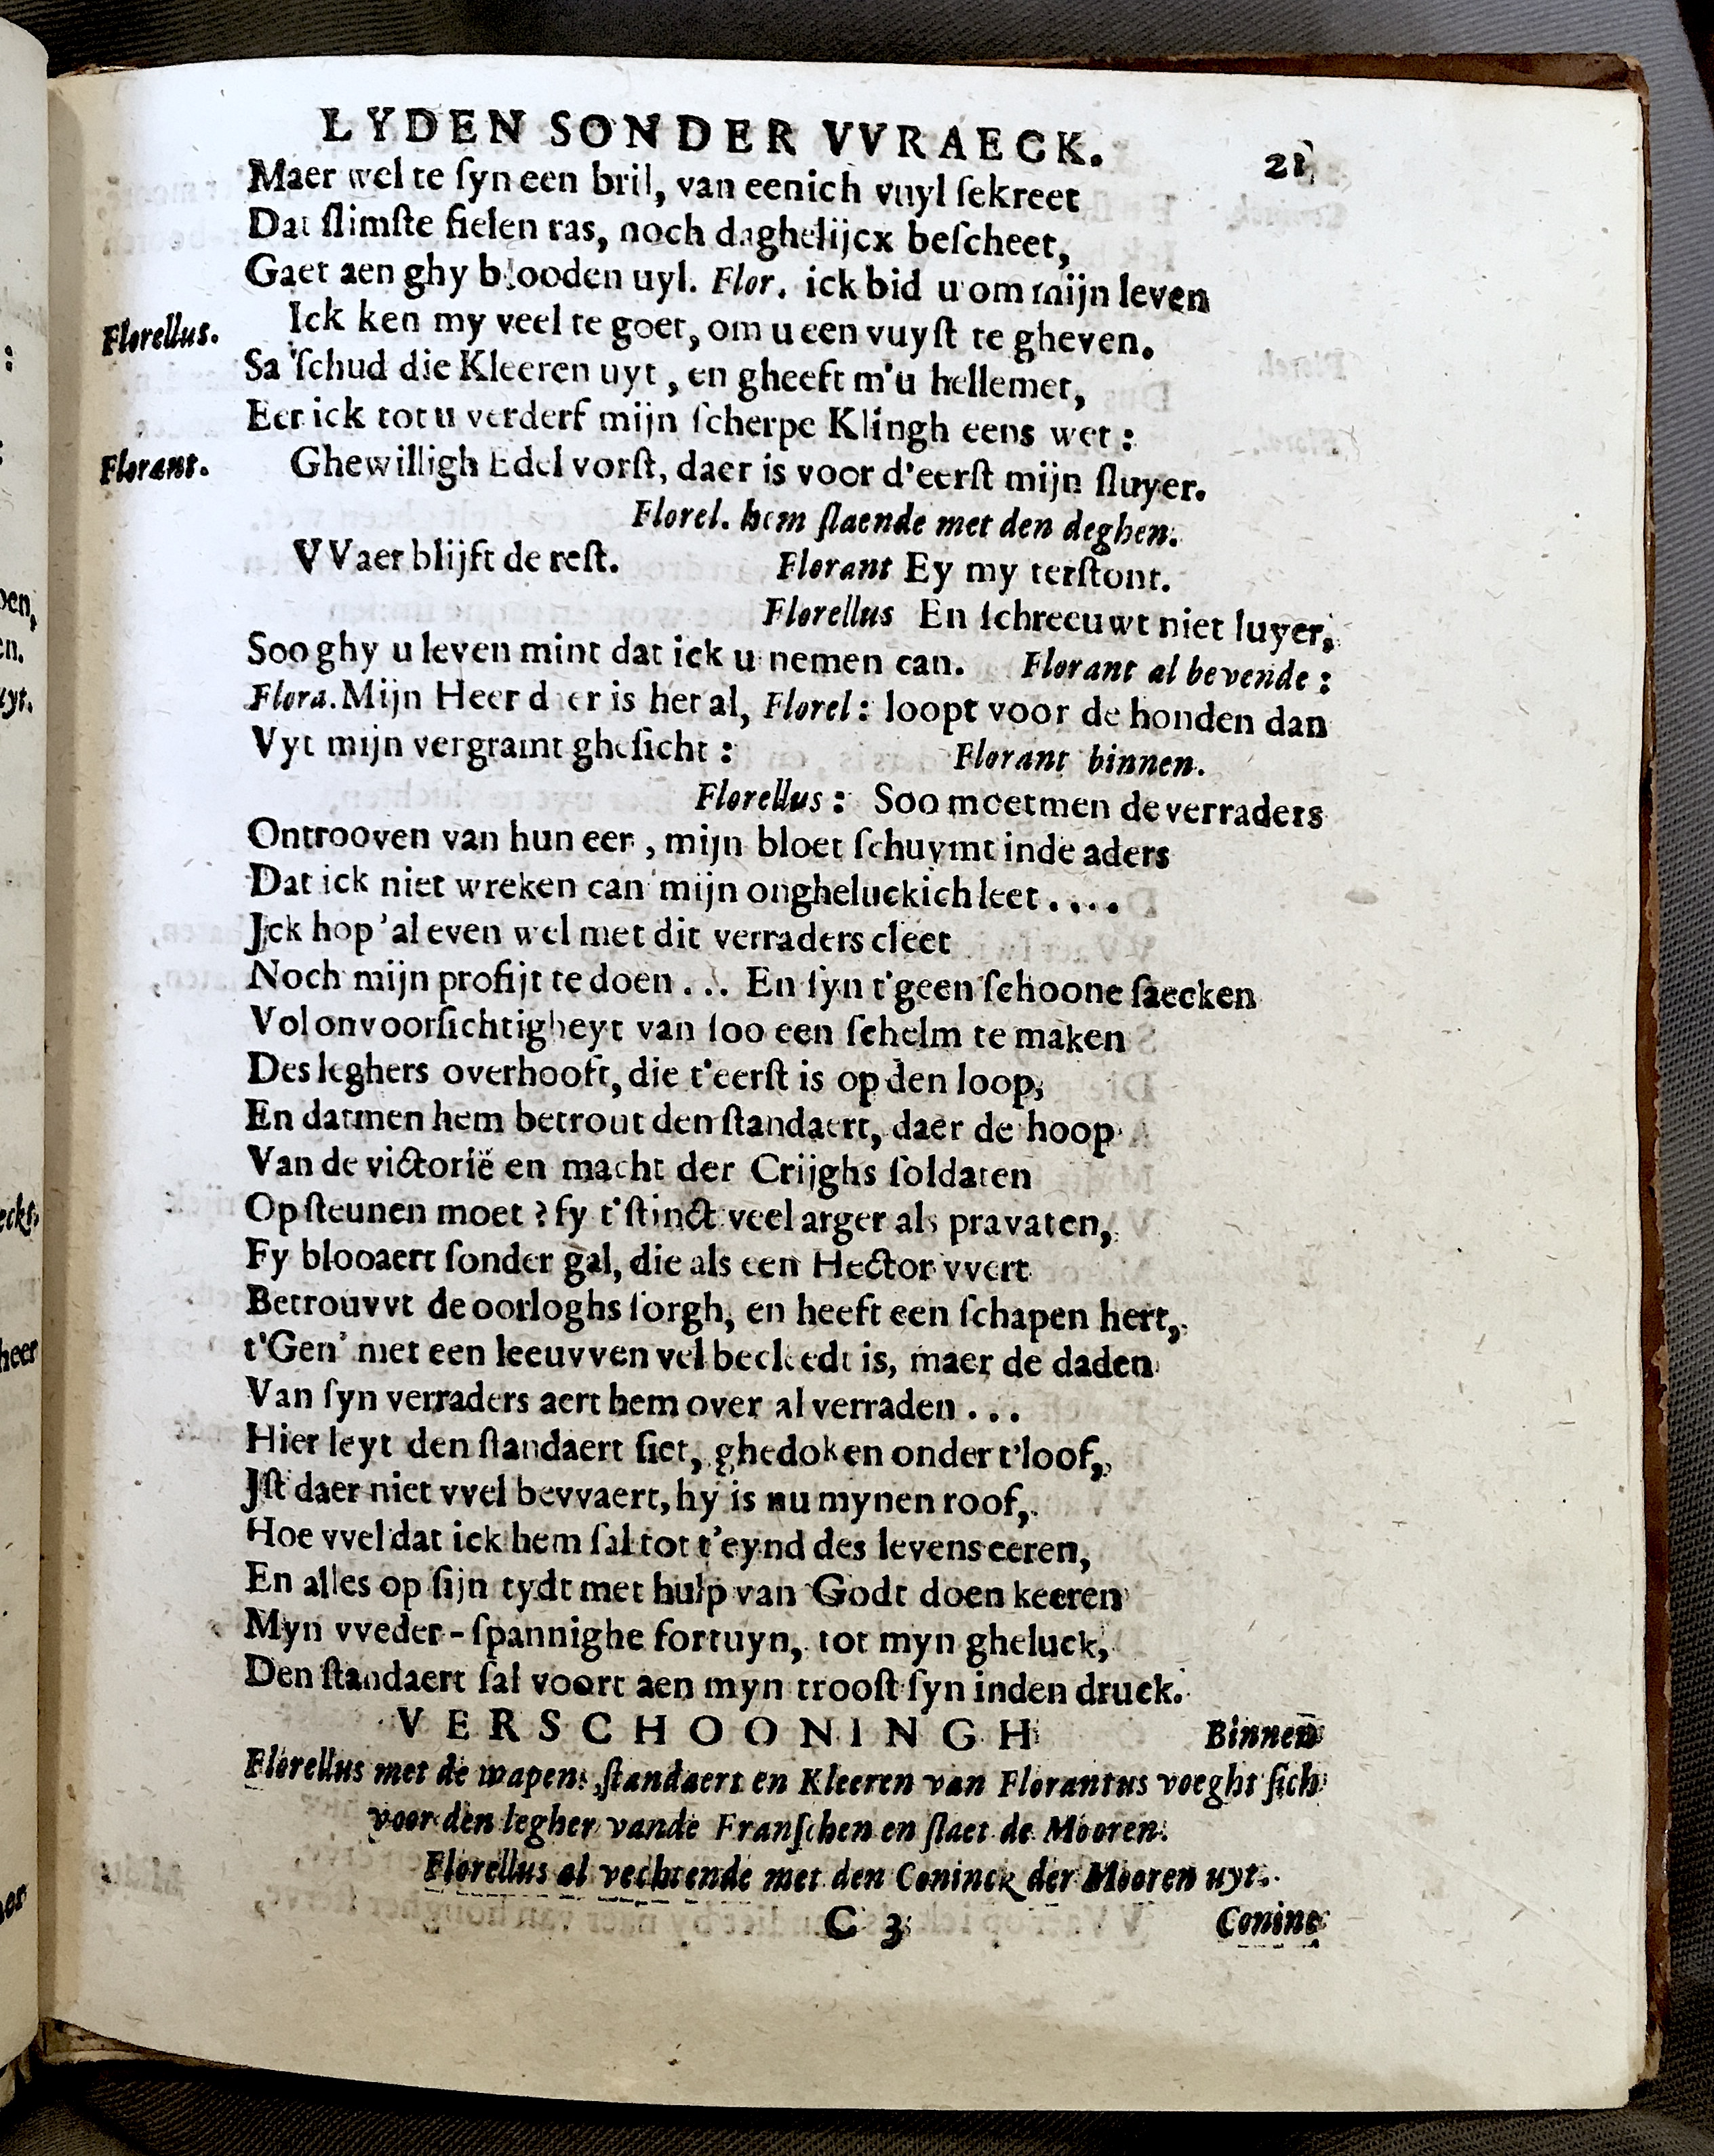 LYDEN SONDER VVRAECK. 21
Maer wel te ſyn een bril, van eenich vuyl ſekreet
Dat ſlimſte fielen ras, noch daghelijcx beſcheet,
Gaet aen ghy blooden uyl. Flor. ick bid u om mijn leven
Florellus. Ick ken my veel te goet, om u een vuyſt te gheven.
Sa 'ſchud die Kleeren uyt, en gheeft m'u hellemet,
Eer ick tot u verderf mijn ſcherpe Klingh eens wet:
Florant. Ghewilligh Edel vorſt, daer is voor d'eerſt mijn ſluyer.
Florel. hem ſlaende met den deghen.
VVaer blijft de reſt. Florant Ey my terſtont.
Florellus En ſchreeuwt niet luyer,
Soo ghy u leven mint dat ick u nemen can. Florant al bevende:
Flora. Mijn Heer daer is het al, Florel: loopt voor de honden dan
Vyt mijn vergramt gheſicht: Florant binnen.
Florellus: Soo moetmen de verraders
Ontrooven van hun eer, mijn bloet ſchuymt inde aders
Dat ick niet wreken can mijn ongheluckich leet....
Jck hop' al even wel met dit verraders cleet
Noch mijn profijt te doen... En ſyn t'geen ſchoone ſaecken
Vol onvoorſichtigheyt van ſoo een ſchelm te maken
Des leghers overhooft, die t'eerſt is op den loop,
En datmen hem betrout den ſtandaert, daer de hoop
Van de victorië en macht der Crijghs ſoldaten
Op ſteunen moet? fy t'ſtinct veel arger als pravaten,
Fy blooaert ſonder gal, die als een Hector vvert
Betrouvvt de oorloghs ſorgh, en heeft een ſchapen hert,
t'Gen' met een leeuvven vel becleedt is, maer de daden
Van ſyn verraders aert hem over al verraden...
Hier leyt den ſtandaert ſiet, ghedoken onder t'loof,
Jſt daer niet vvel bevvaert, hy is nu mynen roof,
Hoe vvel dat ick hem ſal tot t'eynd des levens eeren,
En alles op ſijn tydt met hulp van Godt doen keeren
Myn vveder-ſpannighe fortuyn, tot myn gheluck,
Den ſtandaert ſal voort aen myn trooſt ſyn inden druck.
VERSCHOONINGH Binnen
Florellus met de wapens ſtandaert en Kleeren van Florantus voeght ſich
voor den legher vande Franſchen en ſlaet de Mooren.
Florellus al vechtende met den Coninck der Mooren uyt.
C 3 Coninc